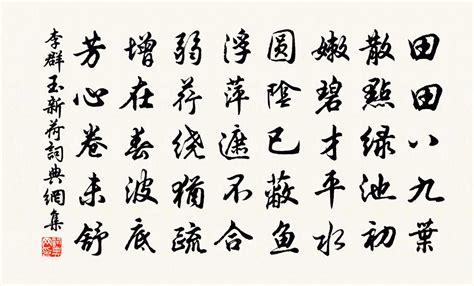 田田八九葉
散點緑池初
嫩碧才平水
圆陰已蔽魚
浮萍遮不合
弱荇绕猶疏
增在春波底
芳心卷未舒
李群玉新荷詞典網集